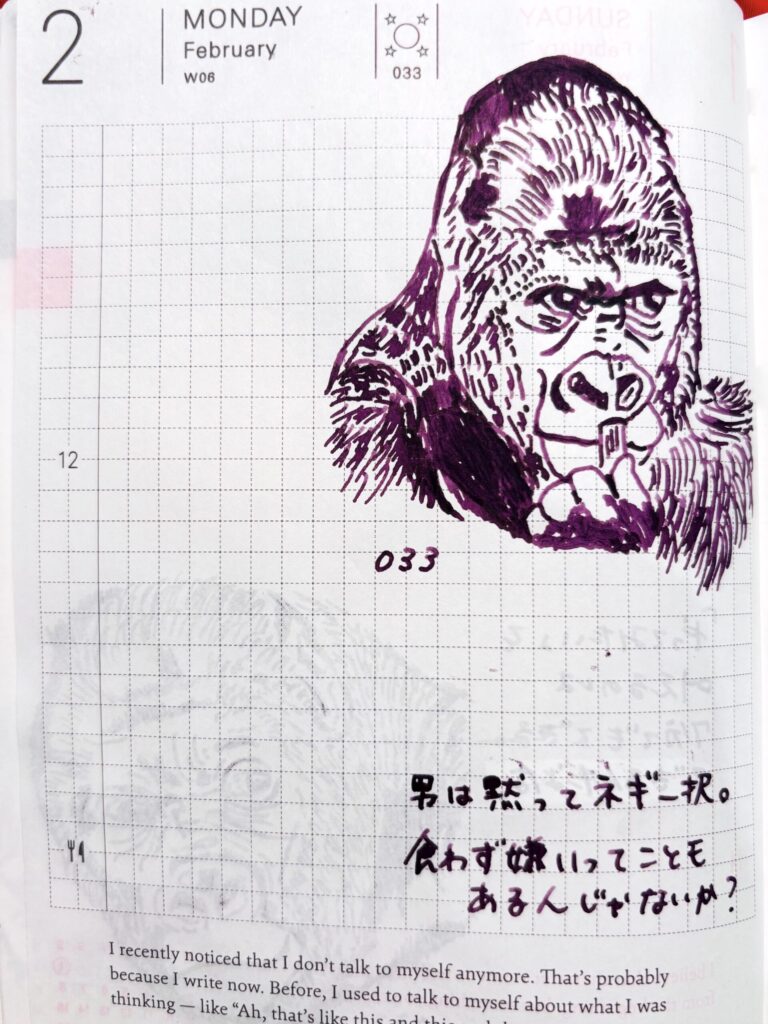 2
MONDAY
February
W06
033
12
033
男は黙ってネギ一択。
食わず嫌いってことも
あるんじゃないか?
I recently noticed that I don't talk to myself anymore. That's probably
because I write now. Before, I used to talk to myself about what I was
thinking — like "Ah, that's like this and this